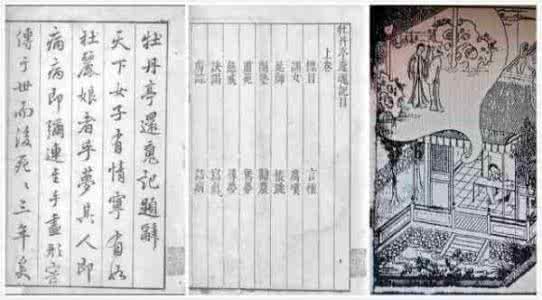 牡丹亭還魂記題辭
天下女子有情寧有如
杜麗娘者乎夢其人即
病病即彌連至手畫形容
傳于世而後死〻三年矣
牡丹亭還魂記目
上卷
標目 言懷
訓女 腐嘆
延師 悵眺
閨塾 勸農
肅苑 驚夢
慈戒 尋夢
訣謁 寫真
虜諜 詰病